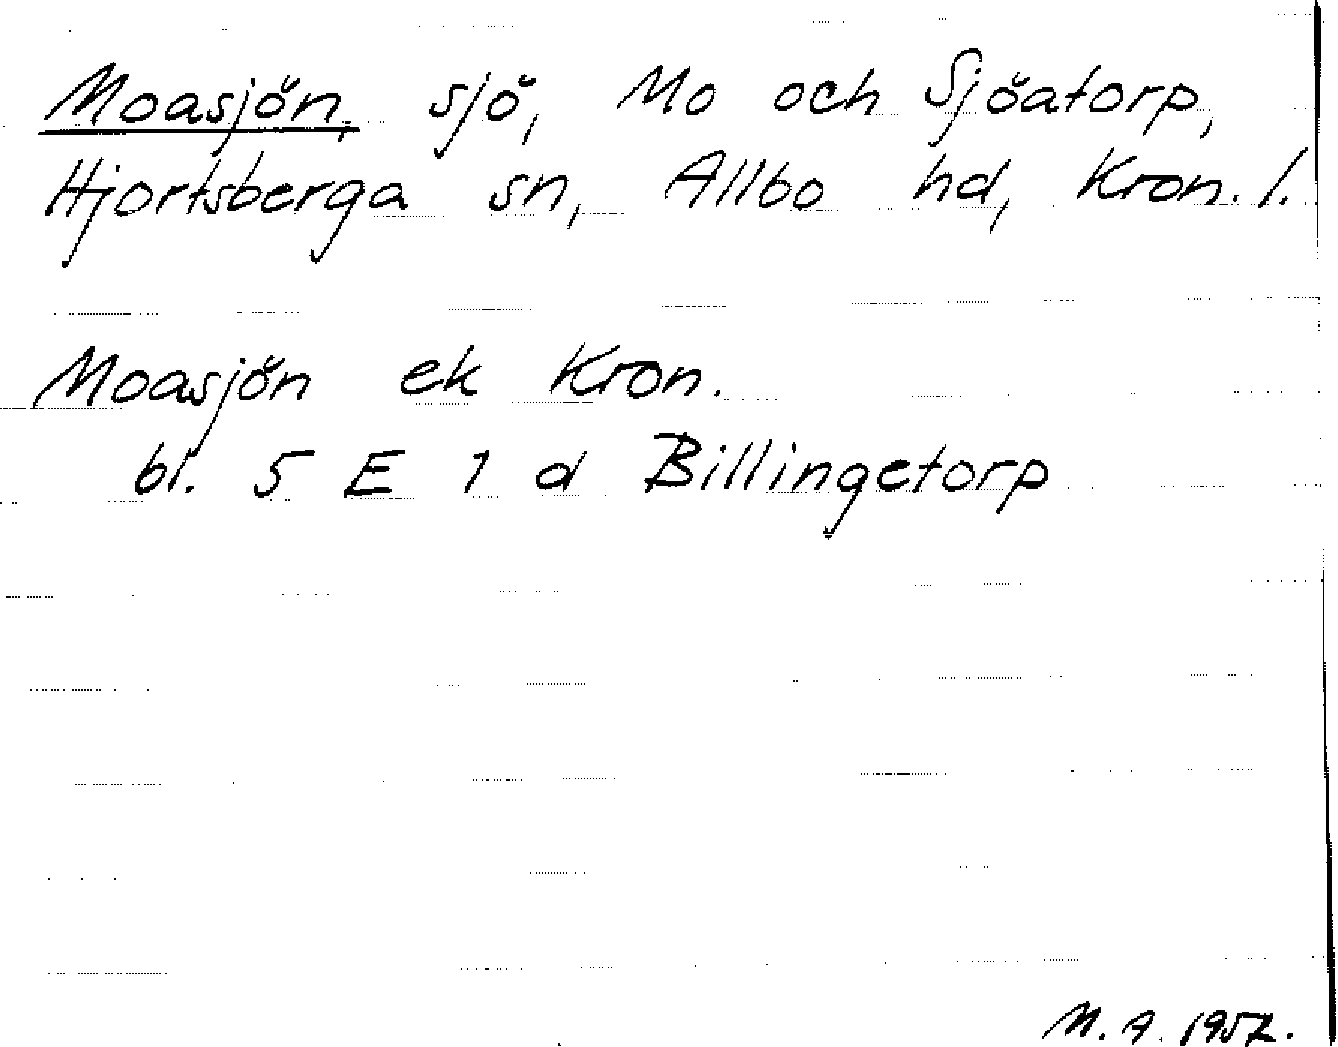 Moasjön, sjö, Mo och Sjöatorp,
Hjortsberga sn, Allbo hd, Kron. l.
Moasjön ek Kron.
bl. 5 E 1 d Billingetorp
M. A. 1957.